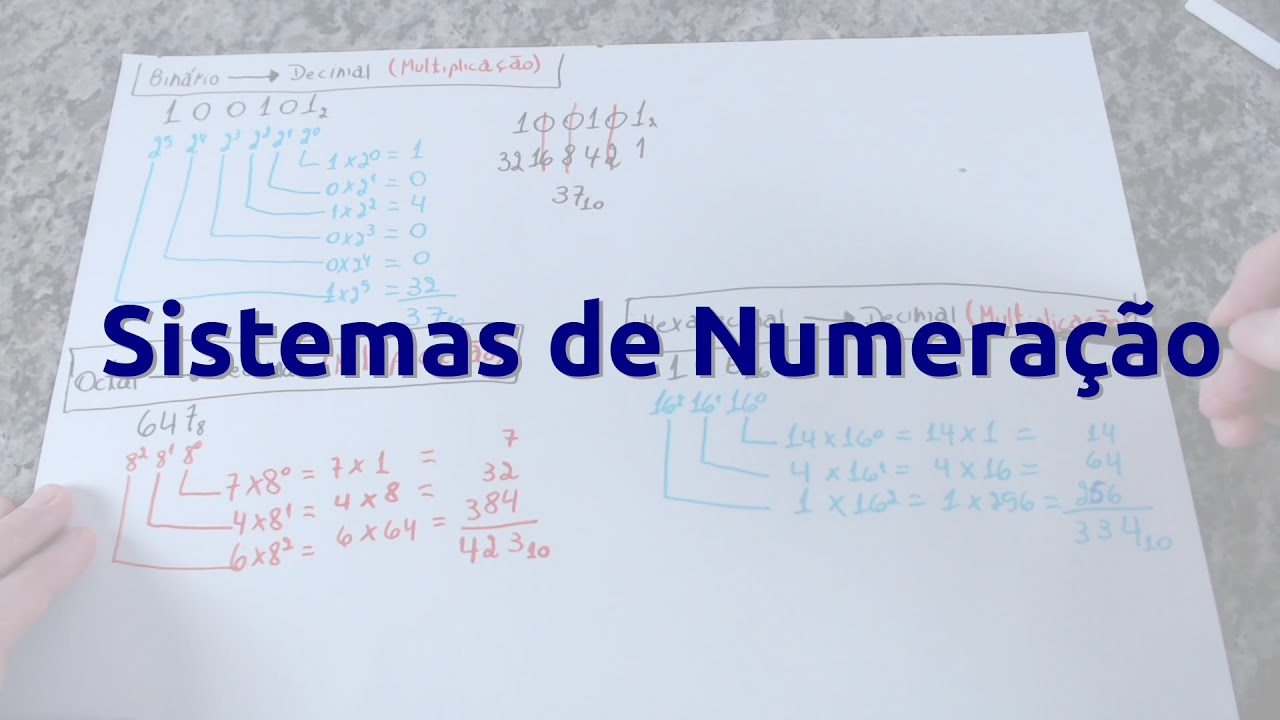 Binário → Decimal (Multiplicação)
1 0 0 1 0 1₂
2⁵ 2⁴ 2³ 2² 2¹ 2⁰
1 x 2⁰ = 1
0 x 2¹ = 0
1 x 2² = 4
0 x 2³ = 0
0 x 2⁴ = 0
1 x 2⁵ = 32
37₁₀
1 0 0 1 0 1₂
32 16 8 4 2 1
37₁₀
Sistemas de Numeração
Octal
647₈
8² 8¹ 8⁰
7 x 8⁰ = 7 x 1 = 7
4 x 8¹ = 4 x 8 = 32
6 x 8² = 6 x 64 = 384
423₁₀
Hexadecimal → Decimal (Multiplicação)
1
16² 16¹ 16⁰
14 x 16⁰ = 14 x 1 = 14
4 x 16¹ = 4 x 16 = 64
1 x 16² = 1 x 256 = 256
334₁₀